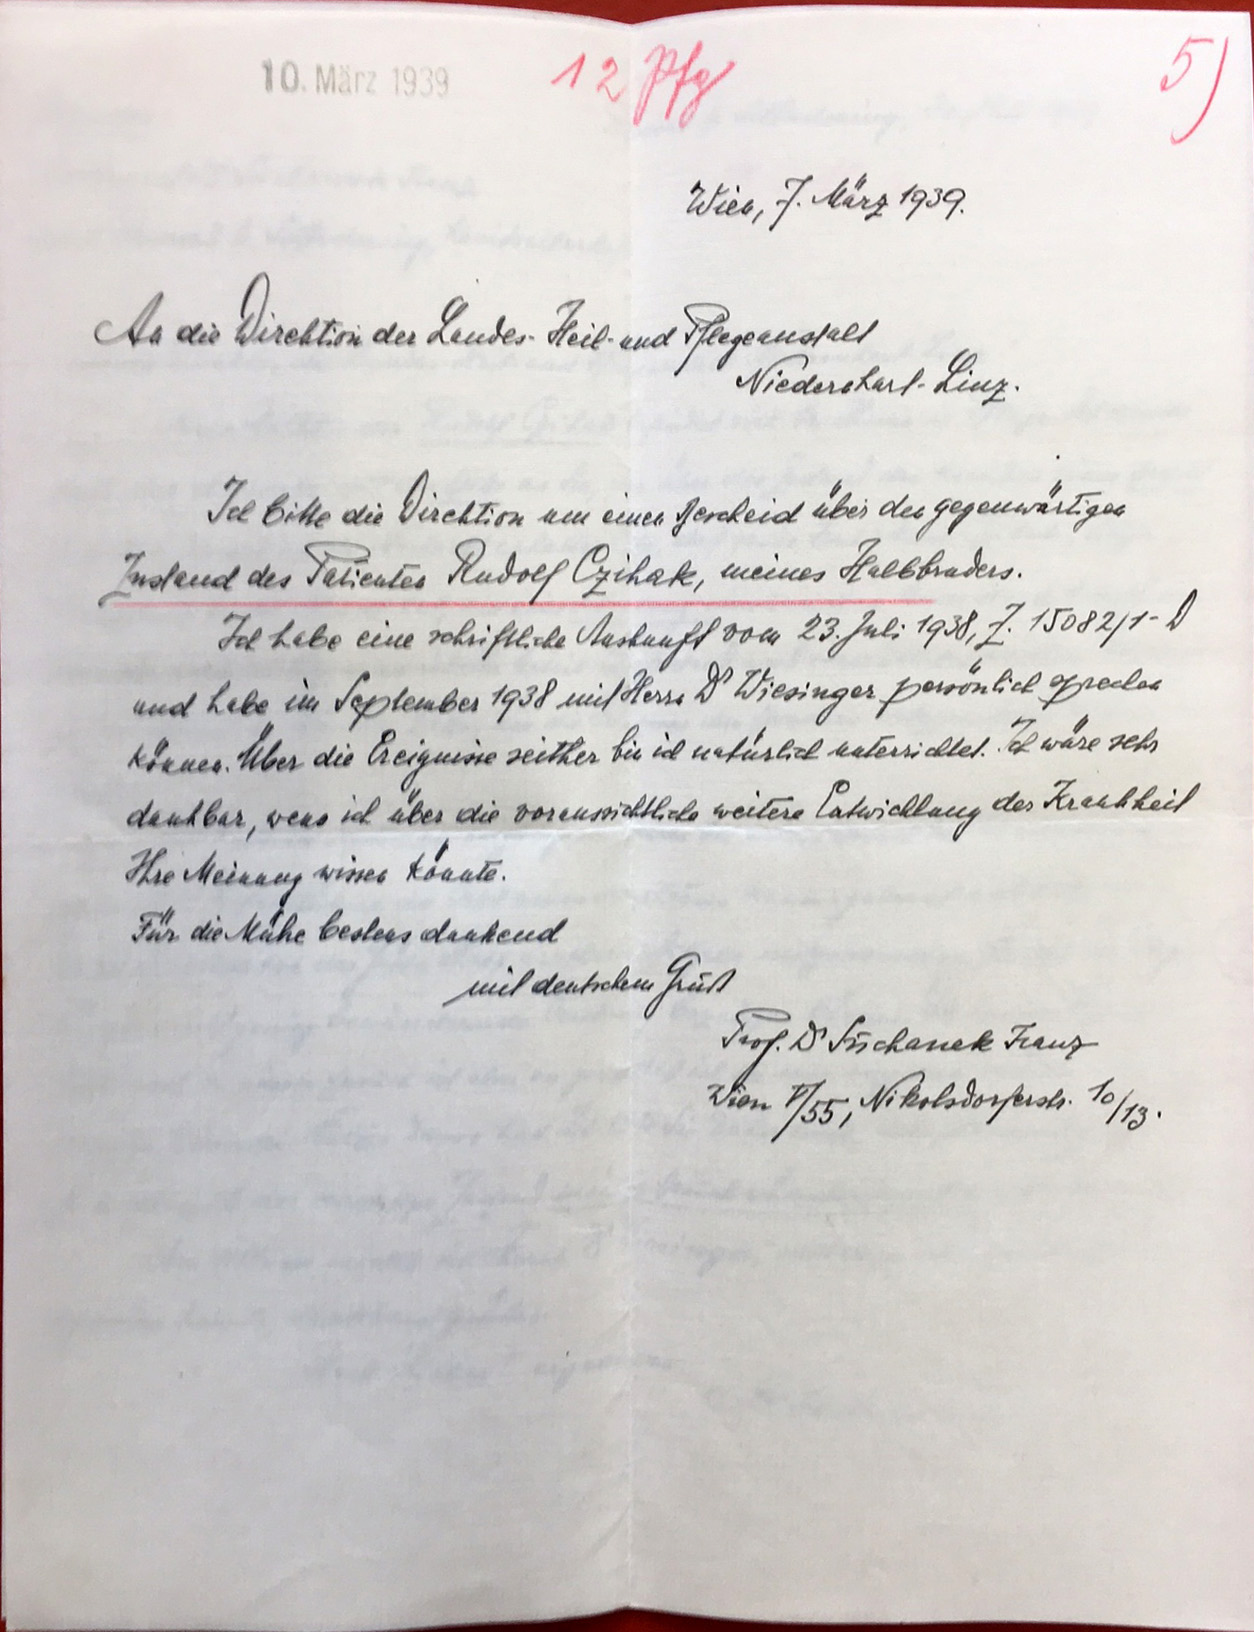 10. März 1939
12 Pfg
5)
Wien, 7. März 1939.
An die Direktion der Landes-Heil-und Pflegeanstalt
Niedernhart-Linz.
Ich bitte die Direktion um einen Bescheid über den gegenwärtigen
Zustand des Patienten Rudolf Czihak, meines Halbbruders.
Ich habe eine schriftliche Auskunft vom 23. Juli 1938, Z. 15082/1-D
und habe im September 1938 mit Herrn Dr Wiesinger persönlich sprechen
können. Über die Ereignisse seither bin ich natürlich unterrichtet. Ich wäre sehr
dankbar, wenn ich über die voraussichtliche weitere Entwicklung der Krankheit
Ihre Meinung wissen könnte.
Für die Mühe bestens dankend
mit deutschem Gruß
Prof. Dr Suchanek Franz
Wien V/55, Nikolsdorferstr. 10/13.